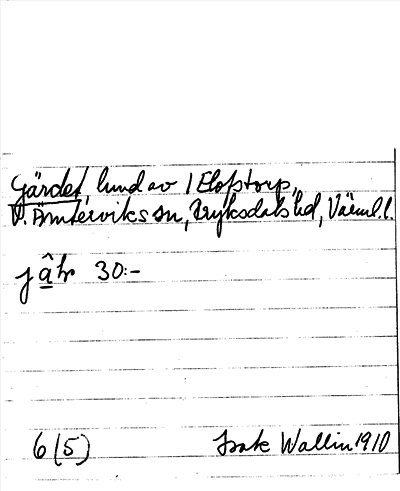 Gärdet, lund av 1 Elofstorp,
V. Ämterviks sn, Fryksdals hd, Värml. l.
jâ̱hr 30:-
6 (5) Isak Wallin 1910